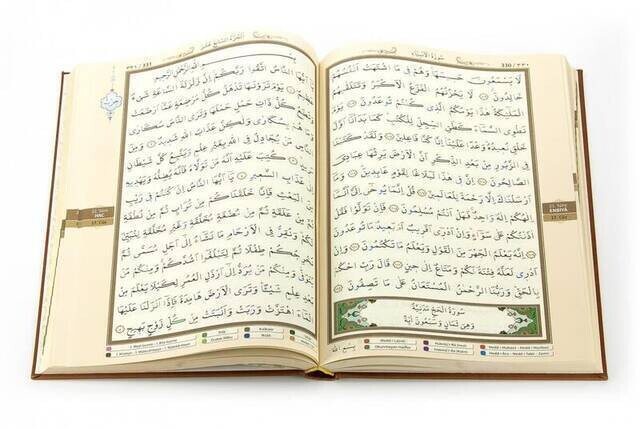 330 / ٣٣٠
سُورَةُ الْأَنْبِيَاءِ
لَا يَسْمَعُونَ حَسِيسَهَا وَهُمْ فِي مَا اشْتَهَتْ اَنْفُسُهُمْ
خَالِدُونَ لَا يَحْزُنُهُمُ الْفَزَعُ الْاَكْبَرُ وَتَتَلَقّٰيهُمُ
الْمَلٰٓئِكَةُ هٰذَا يَوْمُكُمُ الَّذِي كُنْتُمْ تُوعَدُونَ يَوْمَ
نَطْوِي السَّمَٓاءَ كَطَيِّ السِّجِلِّ لِلْكُتُبِ كَمَا بَدَأْنَٓا اَوَّلَ
خَلْقٍ نُعِيدُهُ وَعْدًا عَلَيْنَا اِنَّا كُنَّا فَاعِلِينَ وَلَقَدْ كَتَبْنَا
فِي الزَّبُورِ مِنْ بَعْدِ الذِّكْرِ اَنَّ الْاَرْضَ يَرِثُهَا عِبَادِيَ
الصَّالِحُونَ اِنَّ فِي هٰذَا لَبَلَاغًا لِقَوْمٍ عَابِدِينَ وَمَٓا
اَرْسَلْنَاكَ اِلَّا رَحْمَةً لِلْعَالَمِينَ قُلْ اِنَّمَا يُوحٰٓى اِلَيَّ اَنَّمَٓا
اِلٰهُكُمْ اِلٰهٌ وَاحِدٌ فَهَلْ اَنْتُمْ مُسْلِمُونَ فَاِنْ تَوَلَّوْا فَقُلْ
اٰذَنْتُكُمْ عَلٰى سَوَٓاءٍ وَاِنْ اَدْرِٓي اَقَرِيبٌ اَمْ بَعِيدٌ مَا تُوعَدُونَ
اِنَّهُ يَعْلَمُ الْجَهْرَ مِنَ الْقَوْلِ وَيَعْلَمُ مَا تَكْتُمُونَ وَاِنْ
اَدْرِي لَعَلَّهُ فِتْنَةٌ لَكُمْ وَمَتَاعٌ اِلٰى حِينٍ قَالَ رَبِّ احْكُمْ
بِالْحَقِّ وَرَبُّنَا الرَّحْمٰنُ الْمُسْتَعَانُ عَلٰى مَا تَصِفُونَ
سُورَةُ الْحَجِّ مَدَنِيَّةٌ
وَهِيَ ثَمَانٍ وَسَبْعُونَ اٰيَةً
21. Sûre
ENBİYÂ
17. Cüz
٣٣١ / 331
اَلْجُزْءُ السَّابِعَ عَشَرَ
بِسْمِ اللهِ الرَّحْمٰنِ الرَّحِيمِ
يَٓا اَيُّهَا النَّاسُ اتَّقُوا رَبَّكُمْ اِنَّ زَلْزَلَةَ السَّاعَةِ شَيْءٌ
عَظِيمٌ يَوْمَ تَرَوْنَهَا تَذْهَلُ كُلُّ مُرْضِعَةٍ عَمَّٓا اَرْضَعَتْ
وَتَضَعُ كُلُّ ذَاتِ حَمْلٍ حَمْلَهَا وَتَرَى النَّاسَ سُكَارٰى
وَمَا هُمْ بِسُكَارٰى وَلٰكِنَّ عَذَابَ اللهِ شَدِيدٌ وَمِنَ
النَّاسِ مَنْ يُجَادِلُ فِي اللهِ بِغَيْرِ عِلْمٍ وَيَتَّبِعُ كُلَّ شَيْطَانٍ
مَرِيدٍ كُتِبَ عَلَيْهِ اَنَّهُ مَنْ تَوَلَّاهُ فَاَنَّهُ يُضِلُّهُ وَيَهْدِيهِ
اِلٰى عَذَابِ السَّعِيرِ يَٓا اَيُّهَا النَّاسُ اِنْ كُنْتُمْ فِي رَيْبٍ
مِنَ الْبَعْثِ فَاِنَّا خَلَقْنَاكُمْ مِنْ تُرَابٍ ثُمَّ مِنْ نُطْفَةٍ
ثُمَّ مِنْ عَلَقَةٍ ثُمَّ مِنْ مُضْغَةٍ مُخَلَّقَةٍ وَغَيْرِ مُخَلَّقَةٍ لِنُبَيِّنَ
لَكُمْ وَنُقِرُّ فِي الْاَرْحَامِ مَا نَشَٓاءُ اِلٰٓى اَجَلٍ مُسَمًّى ثُمَّ
نُخْرِجُكُمْ طِفْلًا ثُمَّ لِتَبْلُغُٓوا اَشُدَّكُمْ وَمِنْكُمْ مَنْ
يُتَوَفّٰى وَمِنْكُمْ مَنْ يُرَدُّ اِلٰٓى اَرْذَلِ الْعُمُرِ لِكَيْلَا يَعْلَمَ مِنْ
بَعْدِ عِلْمٍ شَيْـًٔا وَتَرَى الْاَرْضَ هَامِدَةً فَاِذَٓا اَنْزَلْنَا عَلَيْهَا
الْمَٓاءَ اهْتَزَّتْ وَرَبَتْ وَاَنْبَتَتْ مِنْ كُلِّ زَوْجٍ بَهِيجٍ
22. Sûre
HAC
17. Cüz